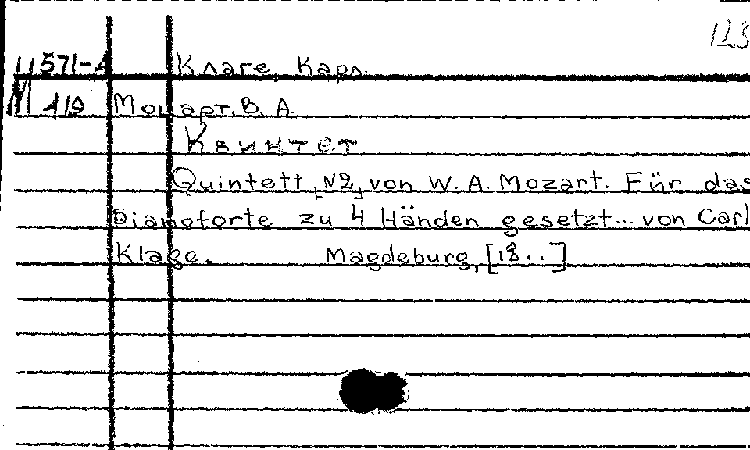 123
М 571-А Клаге, Карл.
М 419 Моцарт, В. А.
Квинтет
Quintett, N2, von W. A. Mozart. Für das
Pianoforte zu 4 Händen gesetzt... von Carl
Klage. Magdeburg, [18..]